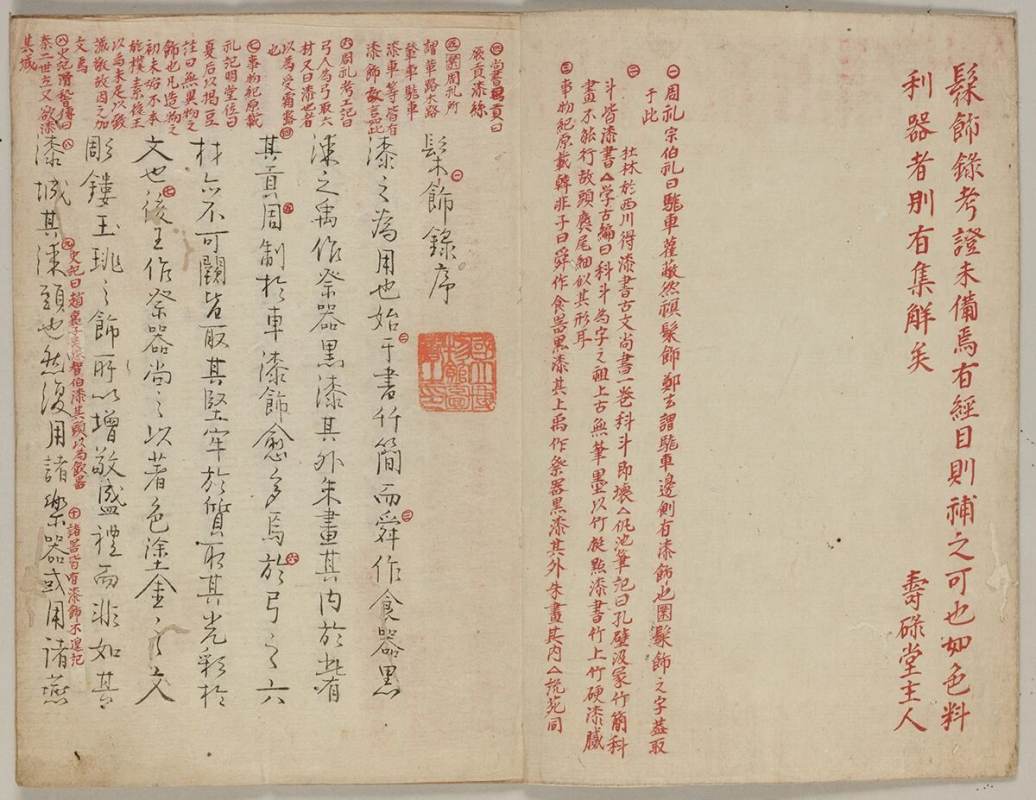 髹飾錄考證未備焉有經目則補之可也如色料
利器者則有集解矣
壽碌堂主人
㊀周礼宗伯礼曰駹車雚蔽然𧜀髹飾鄭玄謂駹車邊側有漆飾也圏髹飾之字蓋取
于此
㊁杜林於西川得漆書古文尚書一巻科斗即壊△仇池筆記曰孔壁汲冢竹簡科
斗皆漆書△学古編曰科斗為字之祖上古無筆墨以竹梃點漆書竹上竹硬漆膩
畫不能行故頭麁尾細似其形耳
㊂事物紀原載韓非子曰舜作食器黒漆其上禹作祭器黒漆其外朱畫其内△説苑同
㊃尚書禹貢曰
厥貢漆絲
㊄圏周礼所
謂革路木路
漆車等皆有
漆飾故云此
㊅周礼考工記曰
弓人為弓取六
材又曰漆也者
以為受霜露
也
㊆事物紀原載
礼記明堂位曰
夏后以揭豆
註曰無異物之
飾也凡造物之
初未始不本
於樸素後王
以為未足以致
誠敬故因之加
文焉
㊇史記滑稽傳曰
秦二世立又欲漆
其城
髹飾錄序
漆之為用也始于書竹簡而舜作食器黒
漆之禹作祭器黒漆其外朱畫其内於此有
其貢周制於車漆飾愈多焉於弓之六
材亦不可闕皆取其堅牢於質取其光彩於
文也後王作祭器尚之以著色塗金之文
彫鏤玉珧之飾所以増敬盛禮而非如其
漆城其漆頭也然後用諸樂器或用諸燕
㊈史記曰趙襄子怨智伯漆其頭以為飲器
㊉諸器皆有漆飾不遑記